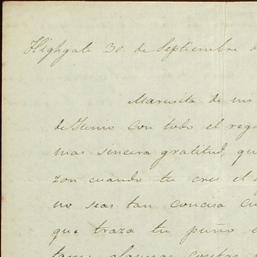 Highgate 30 de Septiembre d
Maruita de mi
de Sumo con todo el reg
mas sincera gratitud, qu
zon cuando tu crees el
no seas tan concisa cu
que traza tu puño